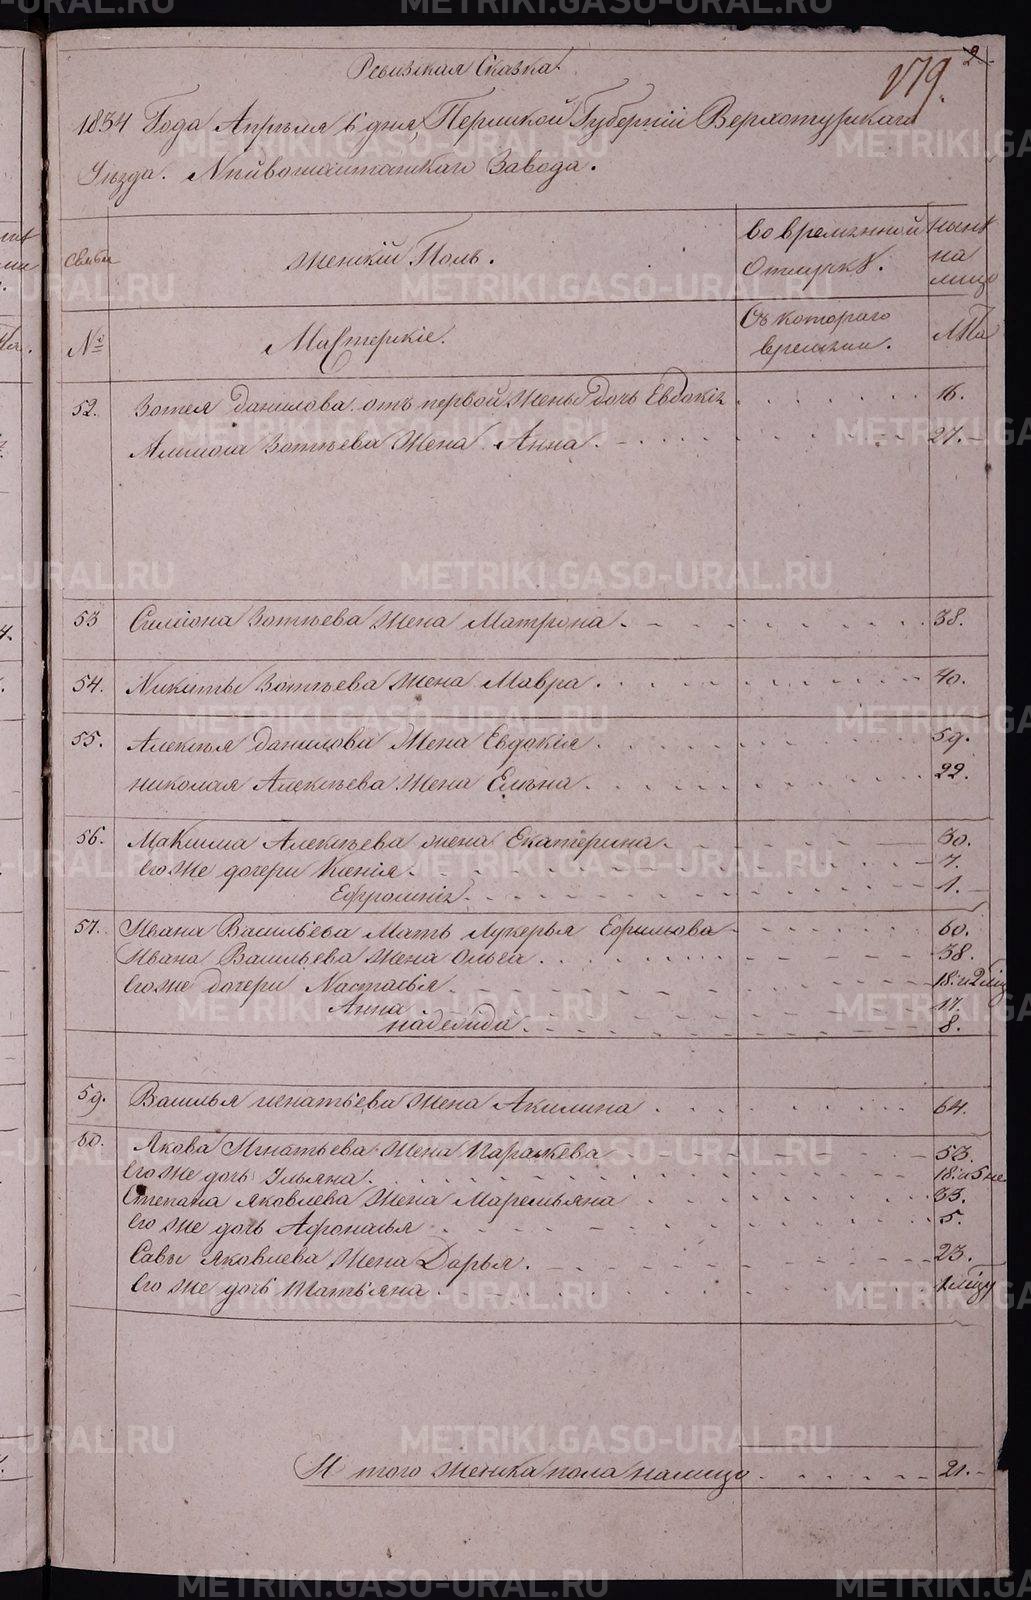 179. 2.
Ревизская Сказка.
1834 Года Апреля 6 дня, Пермской Губернии Верхотурскаго
Уезда. Нейвошайтанскаго Завода.
семьи
Женскій Полъ.
во временной отлучкѣ.
ныне на лицо
№
Мастерскіе.
Съ котораго времяни.
Лѣта
52. Зотея данилова отъ первой Жены дочь Евдокія 16.
Зотѣева Жена Анна. 27.
53 Симіона Зотѣева Жена Матрона. 38.
54. Никиты Зотѣева Жена Мавра. 40.
55. Алексѣя данилова Жена Евдокія. 59.
николая Алексѣева Жена Елѣна. 22.
56. Максима Алексѣева жена Екатерина. 30.
Его же дочери Ксенія. 7.
Ефросинія. 1.
57. Ивана Васильева Мать Лукерья 60.
Ивана Васильева Жена Ольга. 38.
Его же дочери Настасья. 18: и 2 мѣс
Анна 17.
надежда. 8.
59. Василья игнатьева Жена Акилина. 64.
60. Якова Игнатьева Жена Парасковa 53.
Его же дочь Ульяна. 18: и 5 не
Степана Яковлева Жена Маремьяна 33.
Его же дочь Афонасья 5.
Савы Яковлева Жена Дарья. 23.
Его же дочь Татьяна 1 мѣсц
И того женска пола налицо. 21.
METRIKI.GASO-URAL.RU